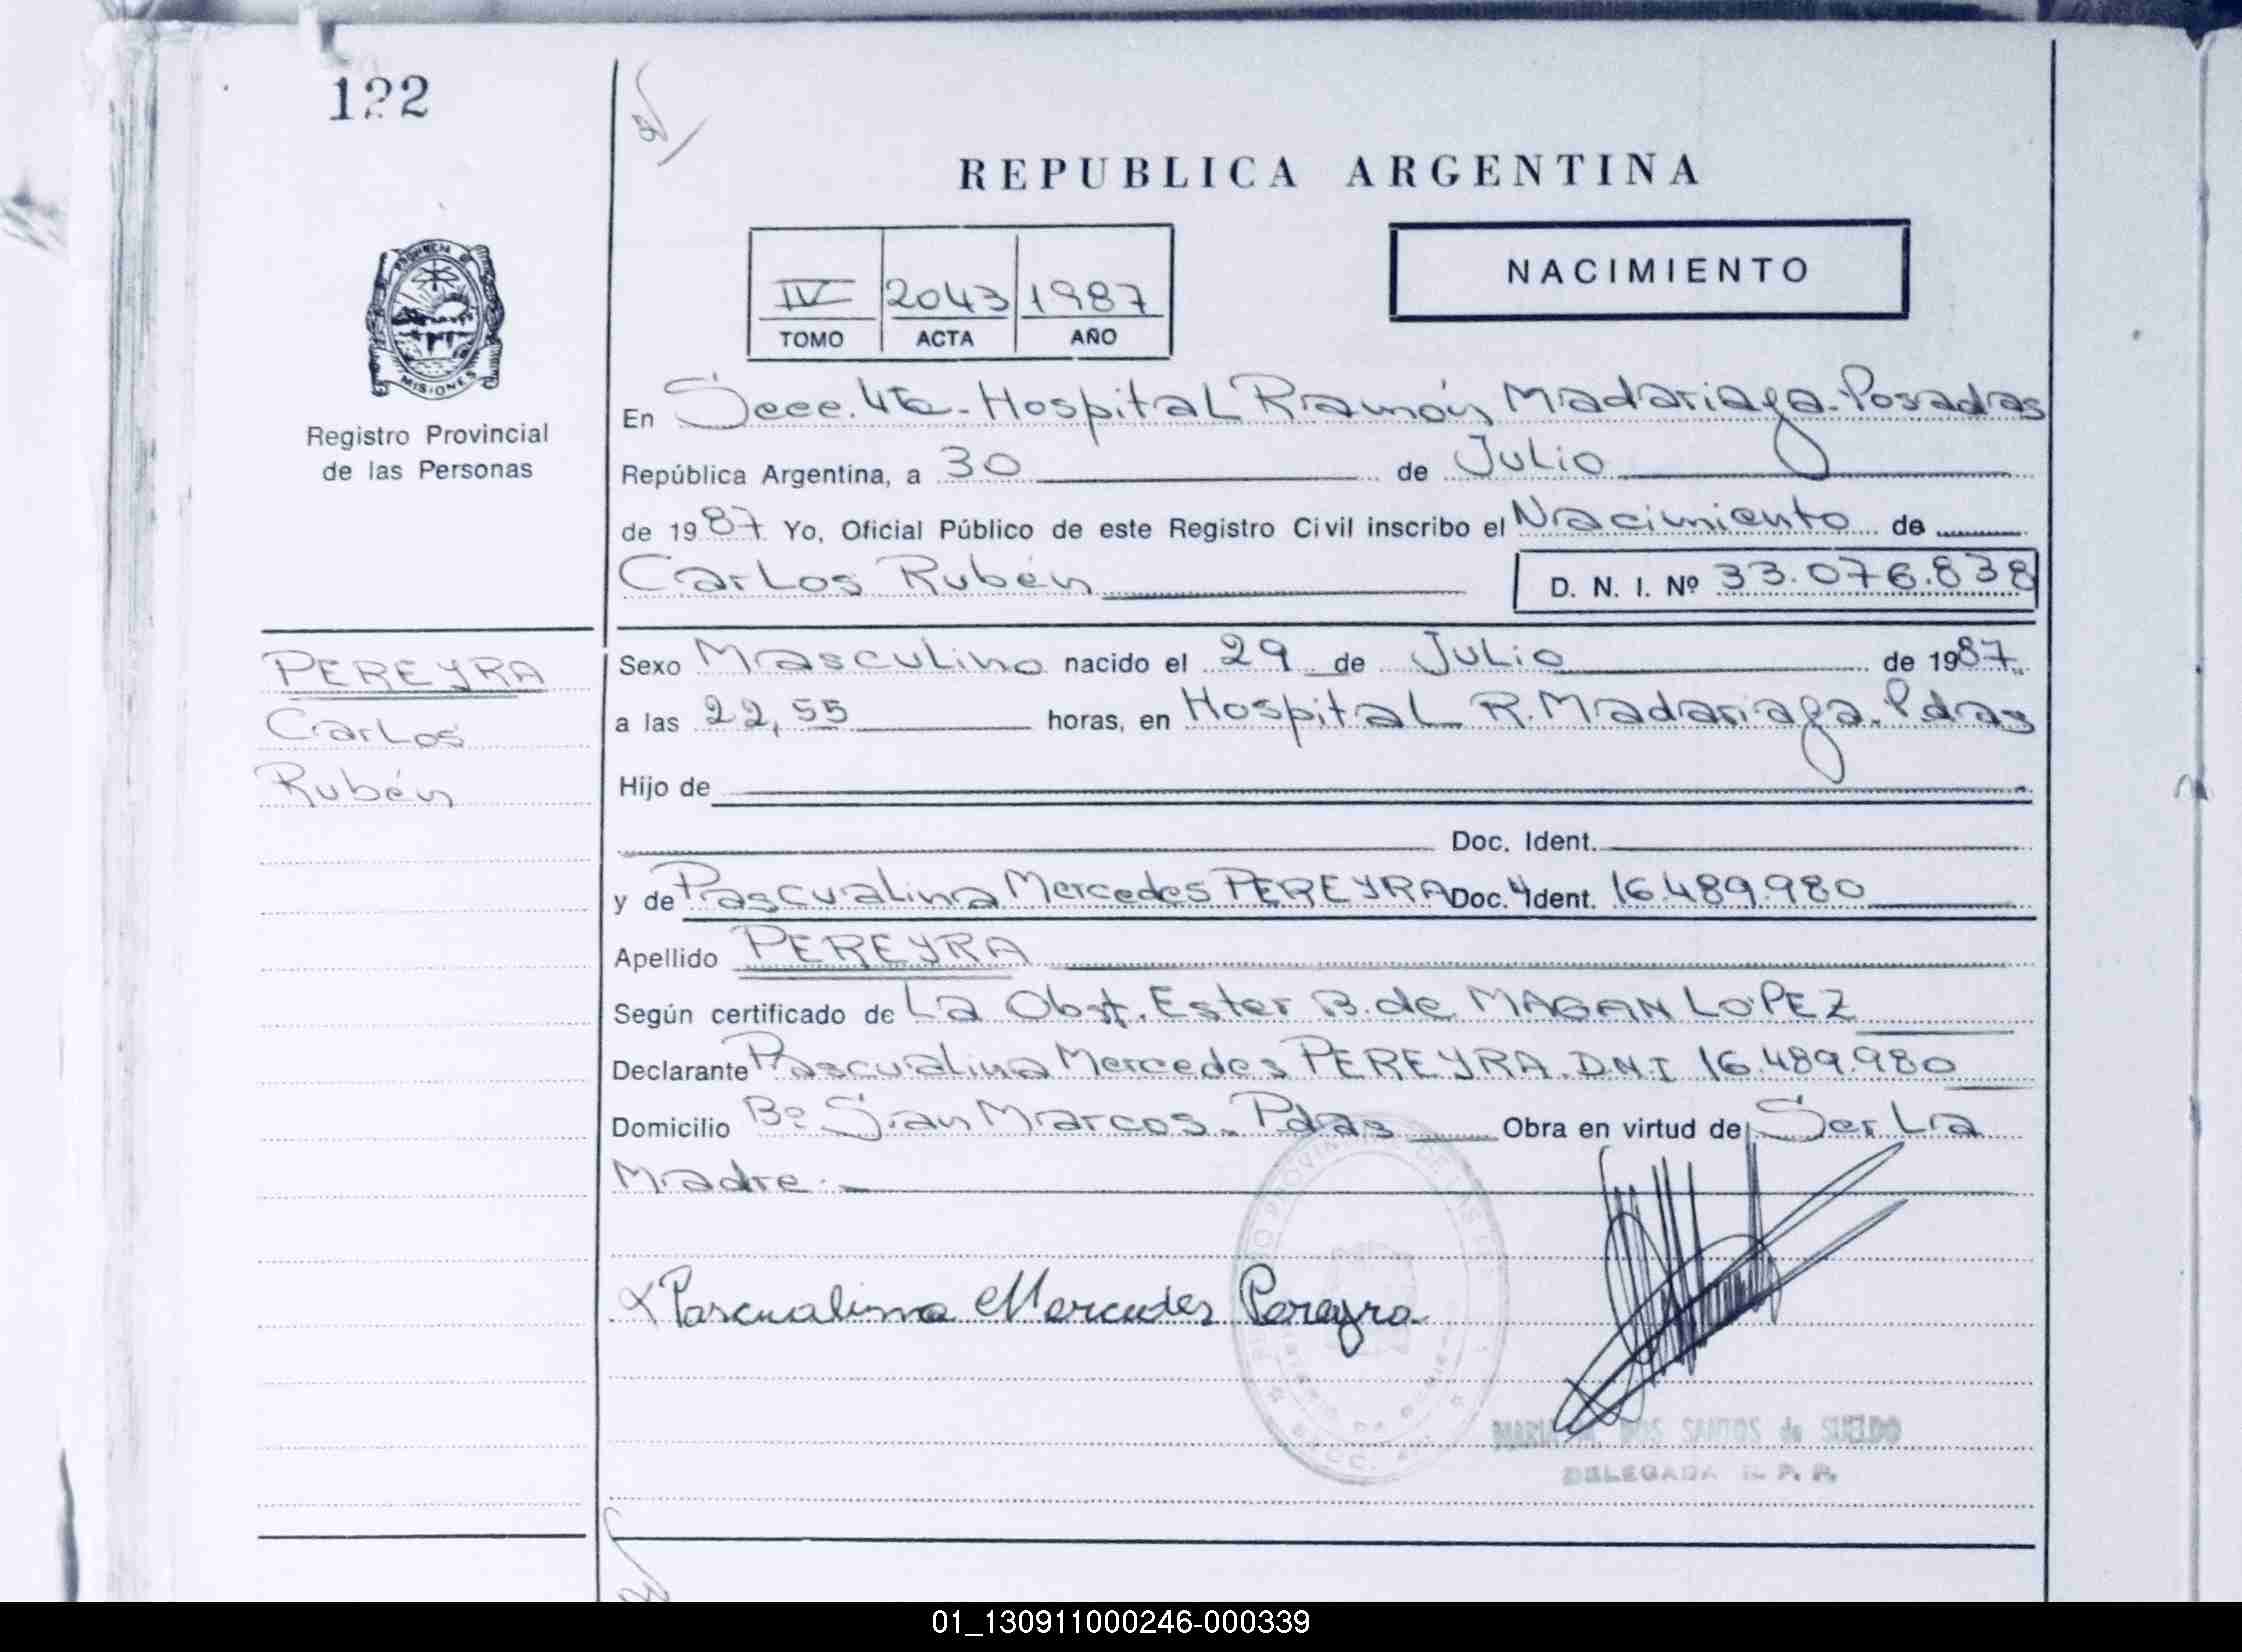 122
REPUBLICA ARGENTINA
NACIMIENTO
IV 2043 1987
TOMO ACTA AÑO
PROVINCIA DE
MISIONES
Registro Provincial
de las Personas
En Secc. 4ta - Hospital Ramón Madariaga - Posadas
República Argentina, a 30 de Julio
de 1987 Yo, Oficial Público de este Registro Civil inscribo el Nacimiento de
Carlos Rubén D. N. I. Nº 33.076.838
PEREYRA
Carlos
Rubén
Sexo Masculino nacido el 29 de Julio de 1987
a las 22,55 horas, en Hospital R. Madariaga. Pdas
Hijo de
Doc. Ident.
y de Pascualina Mercedes PEREYRA Doc. Ident. 16.489.980
Apellido PEREYRA
Según certificado de La Obst. Ester B. de MAGAN LOPEZ
Declarante Pascualina Mercedes PEREYRA. DNI 16.489.980
Domicilio Bº San Marcos. Pdas Obra en virtud de Ser La
Madre.-
x Pascualina Mercedes Pereyra
DOS SANTOS de SUELDO
DELEGADA R. P. P.
01_130911000246-000339